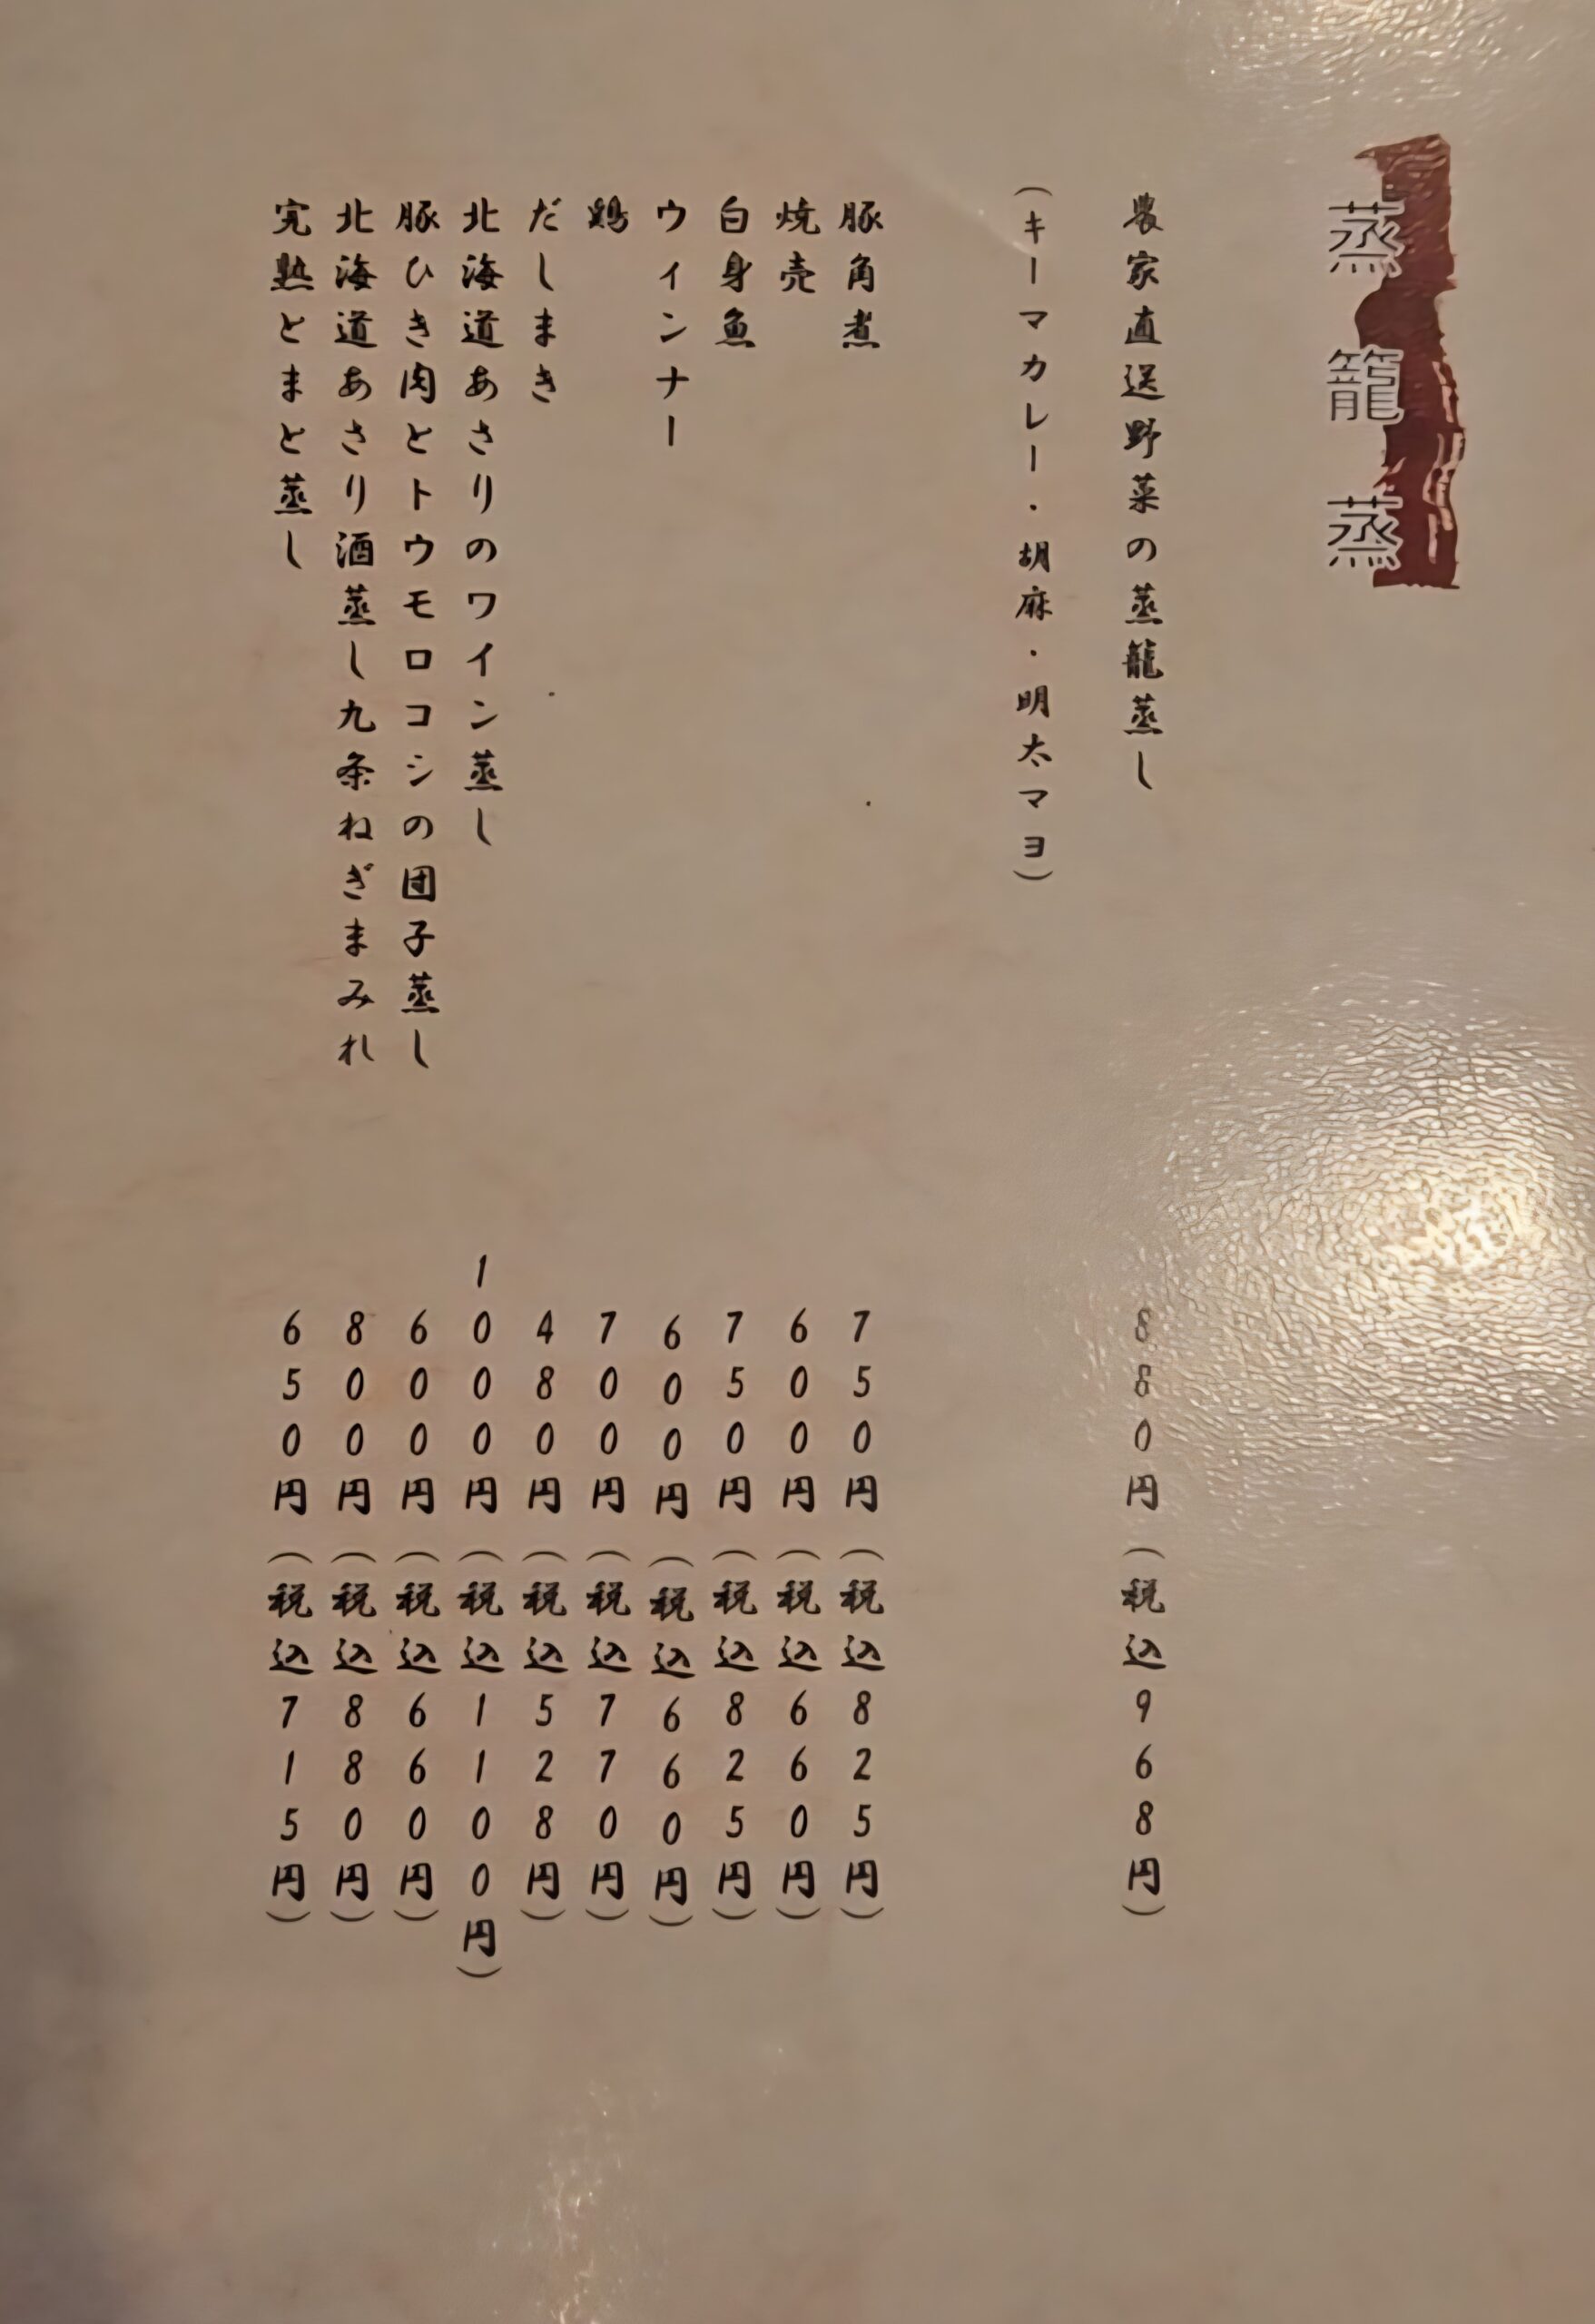 蒸籠蒸
農家直送野菜の蒸籠蒸し 880円(税込968円)
(キーマカレー・胡麻・明太マヨ)
豚角煮 750円(税込825円)
焼売 600円(税込660円)
白身魚 750円(税込825円)
ウィンナー 600円(税込660円)
鶏 700円(税込770円)
だしまき 480円(税込528円)
北海道あさりのワイン蒸し 1000円(税込1100円)
豚ひき肉とトウモロコシの団子蒸し 600円(税込660円)
北海道あさり酒蒸し九条ねぎまみれ 800円(税込880円)
完熟とまと蒸し 650円(税込715円)